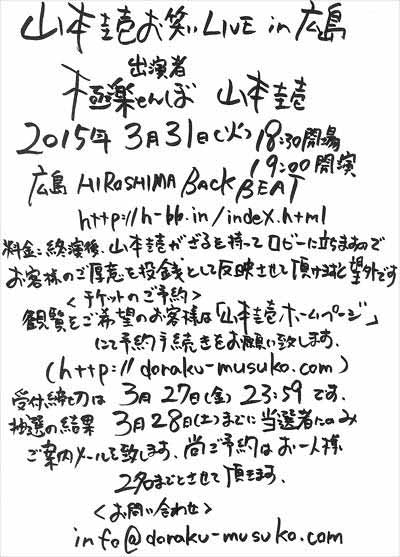 山本圭壱お笑いLIVE in 広島
出演者
極楽とんぼ 山本圭壱
2015年3月31日(火) 18:30開場
19:00開演
広島 HIROSHIMA BACK BEAT
http://h-bb.in/index.html
料金:終演後、山本圭壱がざるを持ってロビーに立ちますので
お客様のご厚意を投銭として反映させて頂けますと望外です
<チケットのご予約>
観覧をご希望のお客様は「山本圭壱ホームページ」
にて予約手続きをお願い致します。
(http://doraku-musuko.com)
受付締切は 3月27日(金) 23:59 です。
抽選の結果 3月28日(土)までに当選者にのみ
ご案内メールを致します。尚ご予約はお一人様
2名までとさせて頂きます。
<お問い合わせ>
info@doraku-musuko.com